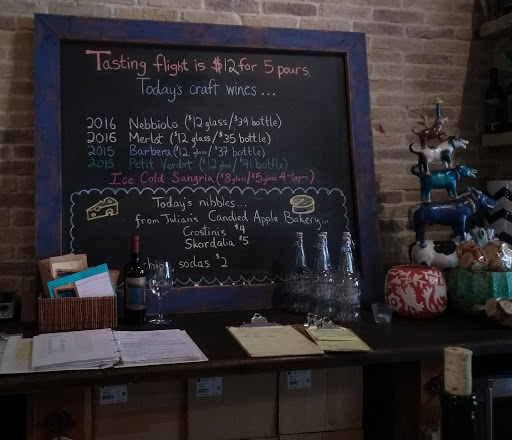 Tasting flight is $12 for 5 pours.
Today's craft wines ...
2016 Nebbiolo ($12 glass/$39 bottle)
2016 Merlot ($12 glass/$35 bottle)
2015 Barbera ($12 glass/$37 bottle)
2015 Petit Verdot ($12 glass/$41 bottle)
Ice Cold Sangria ($8 glass/$5 glass 4-6pm)
Today's nibbles...
from Julian's Candied Apple Bakery...
Crostinis $4
Skordalia $5
sodas $2